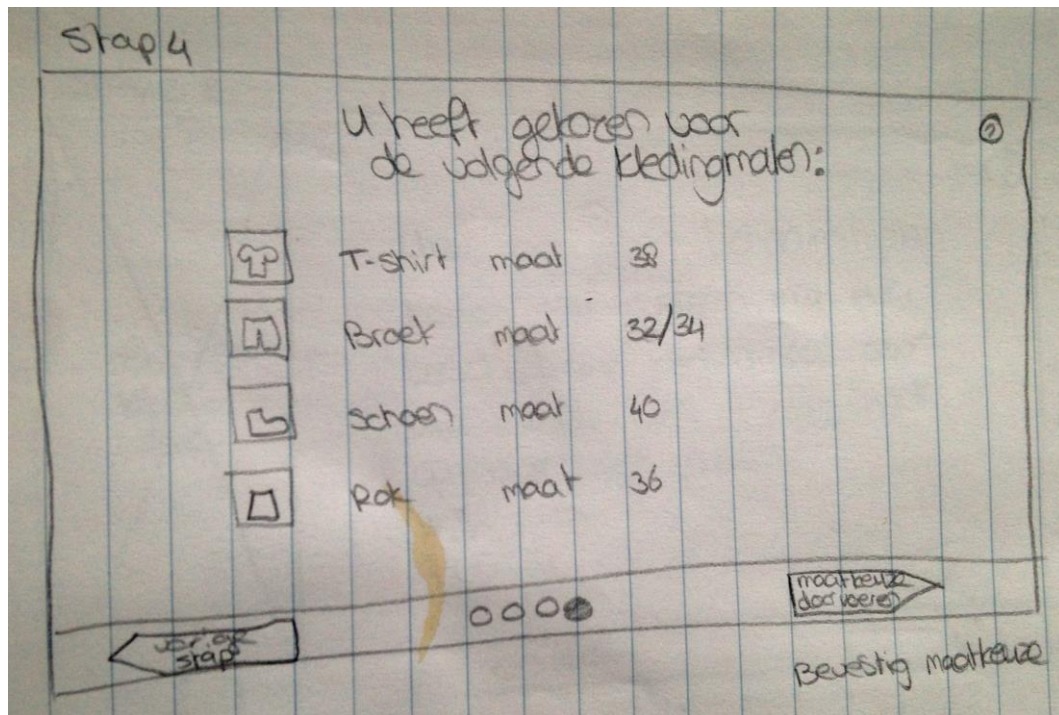 Stap 4
U heeft gekozen voor
de volgende kledingmaten:
?
T-shirt maat 38
Broek maat 32/34
schoen maat 40
Rok maat 36
maatkeuze
doorvoeren
vorige
stap
Bevestig maatkeuze